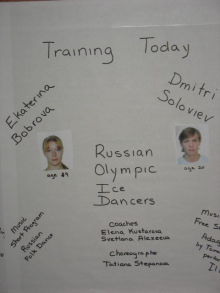 Training Today
Ekaterina
Bobrova
Dmitri
Soloviev
Russian
Olympic
Ice
Dancers
age 20
Coaches
Elena Kustarova
Svetlana Alexeeva
Choreographer
Tatiana Stepanova
Music
Short Program
Russian
Folk Dance
Music
Free